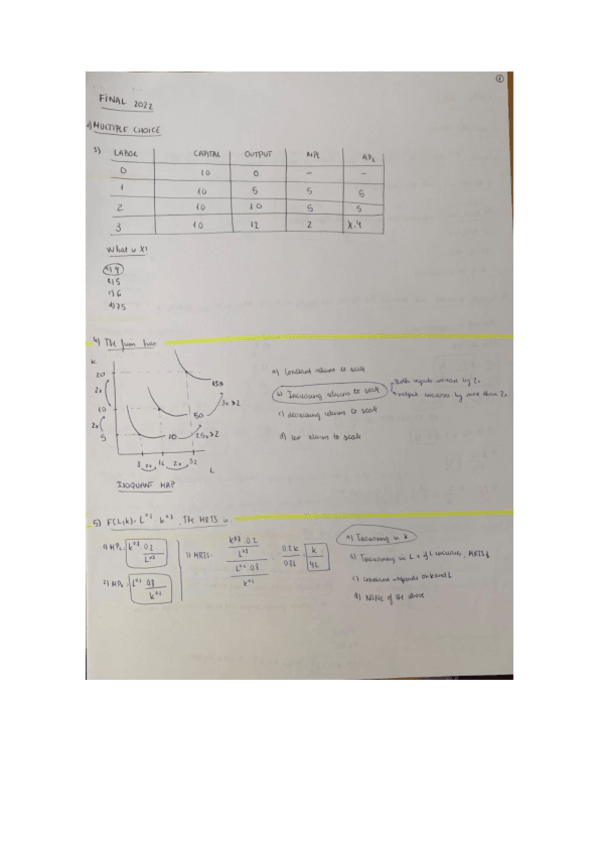 FINAL 2022
MULTIPLE CHOICE
3) LABOR CAPITAL OUTPUT MPL APL
0 10 0 - -
1 10 5 5 5
2 10 10 5 5
3 10 12 2 X=4
What is X?
a) 4
b) 5
c) 6
d) 7.5
4) The firm has
K
20
10
5
2x
2x
150
50
20
3x>2
2.5x>2
8 2x 16 2x 32
L
ISOQUANT MAP
a) Constant returns to scale
b) Increasing returns to scale
Both inputs increase by 2x
output increases by more than 2x
c) decreasing returns to scale
d) returns to scale
5) F(L,K) = L^0.2 K^0.8. The MRTS is
1) MPL = K^0.8 0.2 / L^0.8
2) MPK = L^0.2 0.8 / K^0.2
3) MRTS = K^0.8 0.2 / L^0.8 / L^0.2 0.8 / K^0.2 = 0.2K / 0.8L = K / 4L
a) Increasing in K
b) Increasing in L if L increases, MRTS
c) constant depends on K and L
d) None of the above